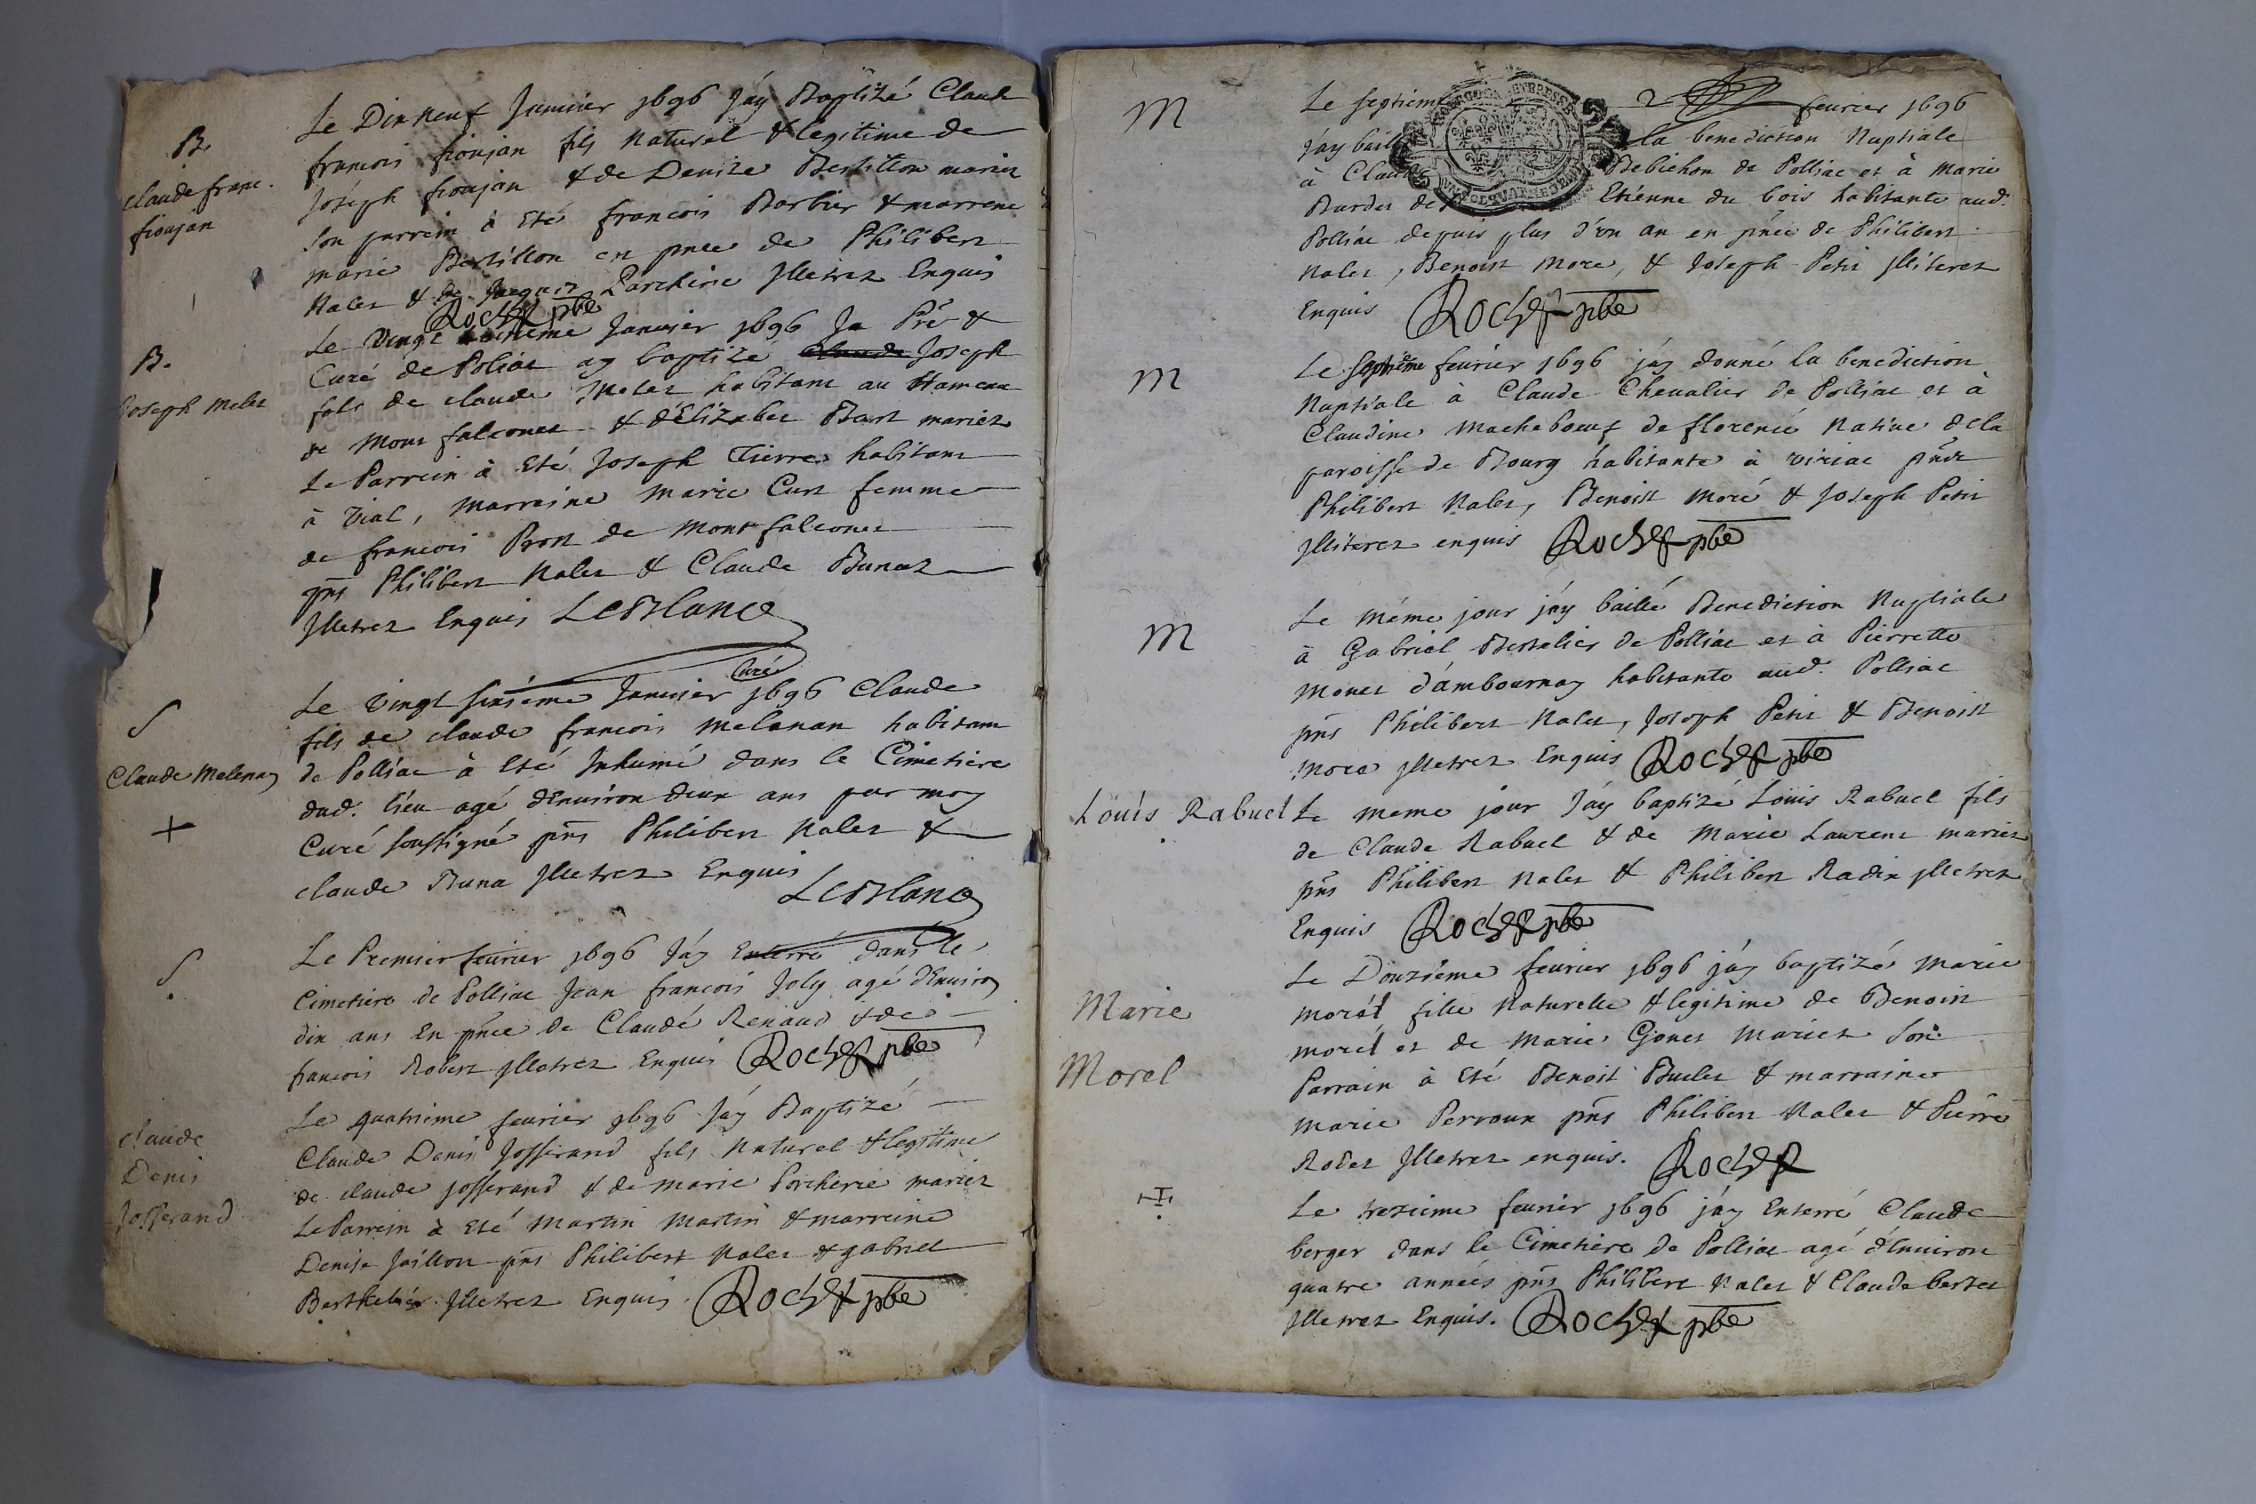 B.
claude franc.
fioujan
Le Dix neuf Janvier 1696 J'áy Baptizé Claude
francois fioujan fils naturel & legitime de
Joséph fioujan & de Denize Bertillon mariez
son parrein à Eté francois Barbier & marrene
marie Bertillon en pnce de Philibert
Nalet & de Jacques Porcherie Jlletrez Enquis
Rochex pbe
B.
Joseph Melet
Le Vingt Janvier 1696 Je Prê &
Curé de Poliac ay baptizé Joseph
fils de claude Melet habitant au Hameau
de Mont falconet & d'Elizabet Bart mariez
Le Parrein à Eté Joseph Tierre habitant
à Vial, Marraine Marie Curt femme
de francois Pront de Montfalconet
pns̄ Philibert Nalet & Claude Bunaz
Jlletrez Enquis LeBlanc
Curé
S
Claude Melenay
+
Le Vingt sixiéme Janvier 1696 Claude
fils de claude francois Melanan habitant
de Polliac à Eté Inhumé dans le Cimetiere
dud. lieu agé d'Environ deux ans par moy
Curé soussigné pns̄ Philibert Nalet &
claude Buna Jlletrez Enquis
LeBlanc
S
Le Premier fevrier 1696 J'áy Enterré dans le
Cimetiere de Polliac Jean francois Joly agé d'Environ
dix ans En pnce de Claude Renaud & de
francois Robert Jlletrez Enquis Rochex pbe
claude
Denis
Josserand
Le quatrieme fevrier 1696 J'áy Baptizé
Claude Denis Josserand fils Naturel & legitime
de claude josserand & de marie Porcherie mariez
Le Parrein à Eté Martin Martin & marreine
Denise Jaillon pns̄ Philibert Nalet & gabriel
Barthelier Jlletrez Enquis. Rochex pbe
M
Le septiéme 2 fevrier 1696
J'áy baill la benediction Nuptiale
à Claude Debichon de Polliac et à Marie
Burdet de Etiénne du bois habitante aud.
Polliac depuis plus d'un an en pn̄ce de Philibert
Nalet, Benoist More, & Joseph Petit Jlliterez
Enquis Rochex pbe
M
Le septiéme fevrier 1696 j'áy donné la benediction
Nuptiale à Claude Chevalier de Polliac et à
Claudine Macheboeuf de Native dela
paroisse de Bourg habitante à viriac pn̄ce
Philibert Nalet, Benoist Moré & Joseph Petit
Jlliterez enquis Rochex pbe
M
Le méme jour j'áy baillé Benediction Nuptiale
à Gabriel Bertelier de Polliac et à Pierrette
Monet d'ambournay habitante aud. Polliac
pns̄ Philibert Nalet, Joseph Petit & Benoist
More Jlletrez Enquis Rochex pbe
Loüis Rabuel
Le meme jour J'áy baptizé Loüis Rabuel fils
de Claude Rabuel & de Marie Laurent mariez
pns̄ Philibert Nalet & Philibert Radix Jlletrez
Enquis Rochex pbe
Marie
Morel
Le Douziéme fevrier 1696 j'áy baptizé Marie
morél fille Naturelle & legitime de Benoist
morél et de Marie Gonet Mariez Son
Parrain à Eté Benoist Buclet & marraine
Marie Perroux pns̄ Philibert Nalet & Pierre
Robet Jlletrez enquis. Rochex
Le trezieme fevrier 1696 j'áy Enterré Claude
berger dans le Cimetiere de Polliac agé d'Environ
quatre annees pns̄ Philibert Nalet & Claude bertet
Jlletrez Enquis. Rochex pbe